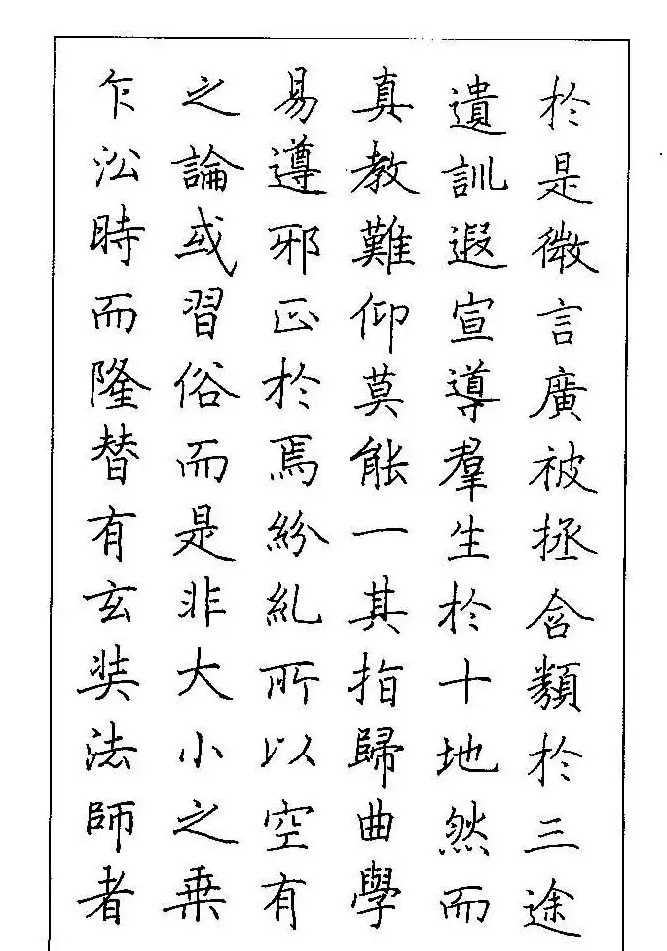 於是微言廣被拯含類於三途
遺訓遐宣導羣生於十地然而
真教難仰莫能一其指歸曲學
易遵邪正於焉紛糺所以空有
之論或習俗而是非大小之乗
乍沿時而隆替有玄奘法師者